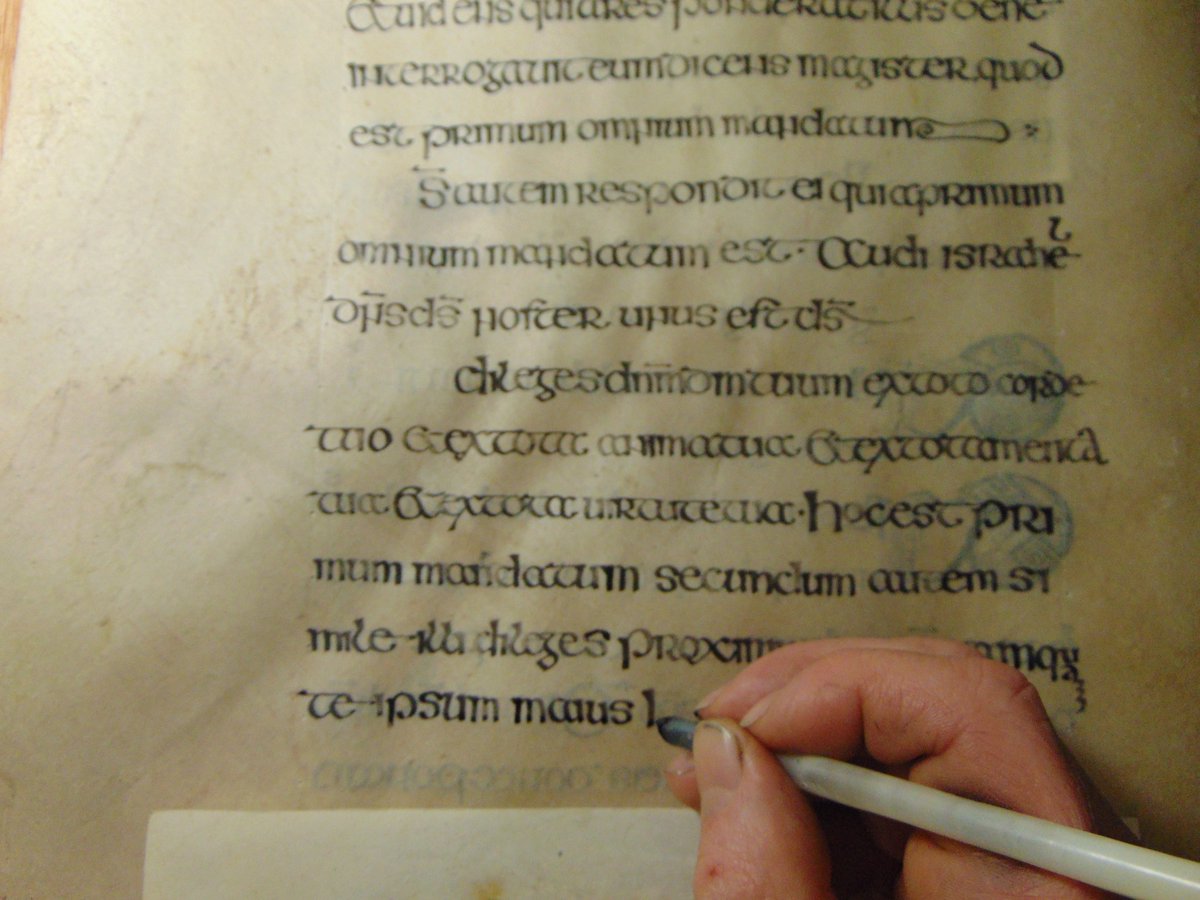 &uidens quia responderat illis bene
interrogauit eum dicens magister quod
est primum omnium mandatum
S̄ autem respondit ei quia primum
omnium mandatum est· Audi israhel
dn̄s ds̄ noster unus est ds̄
diliges dnm̄ dm̄ tuum ex toto corde
tuo & ex tota anima tua & ex tota mente
tua & ex tota uirtute tua· hoc est pri
mum mandatum secundum autem si
mile illi diliges
te ipsum maius